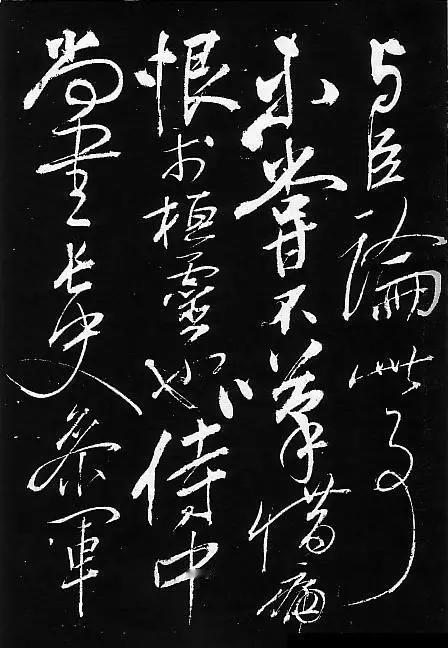 与臣論此事
未嘗不嘆惜痛
恨於桓靈也侍中
尚書長史參軍